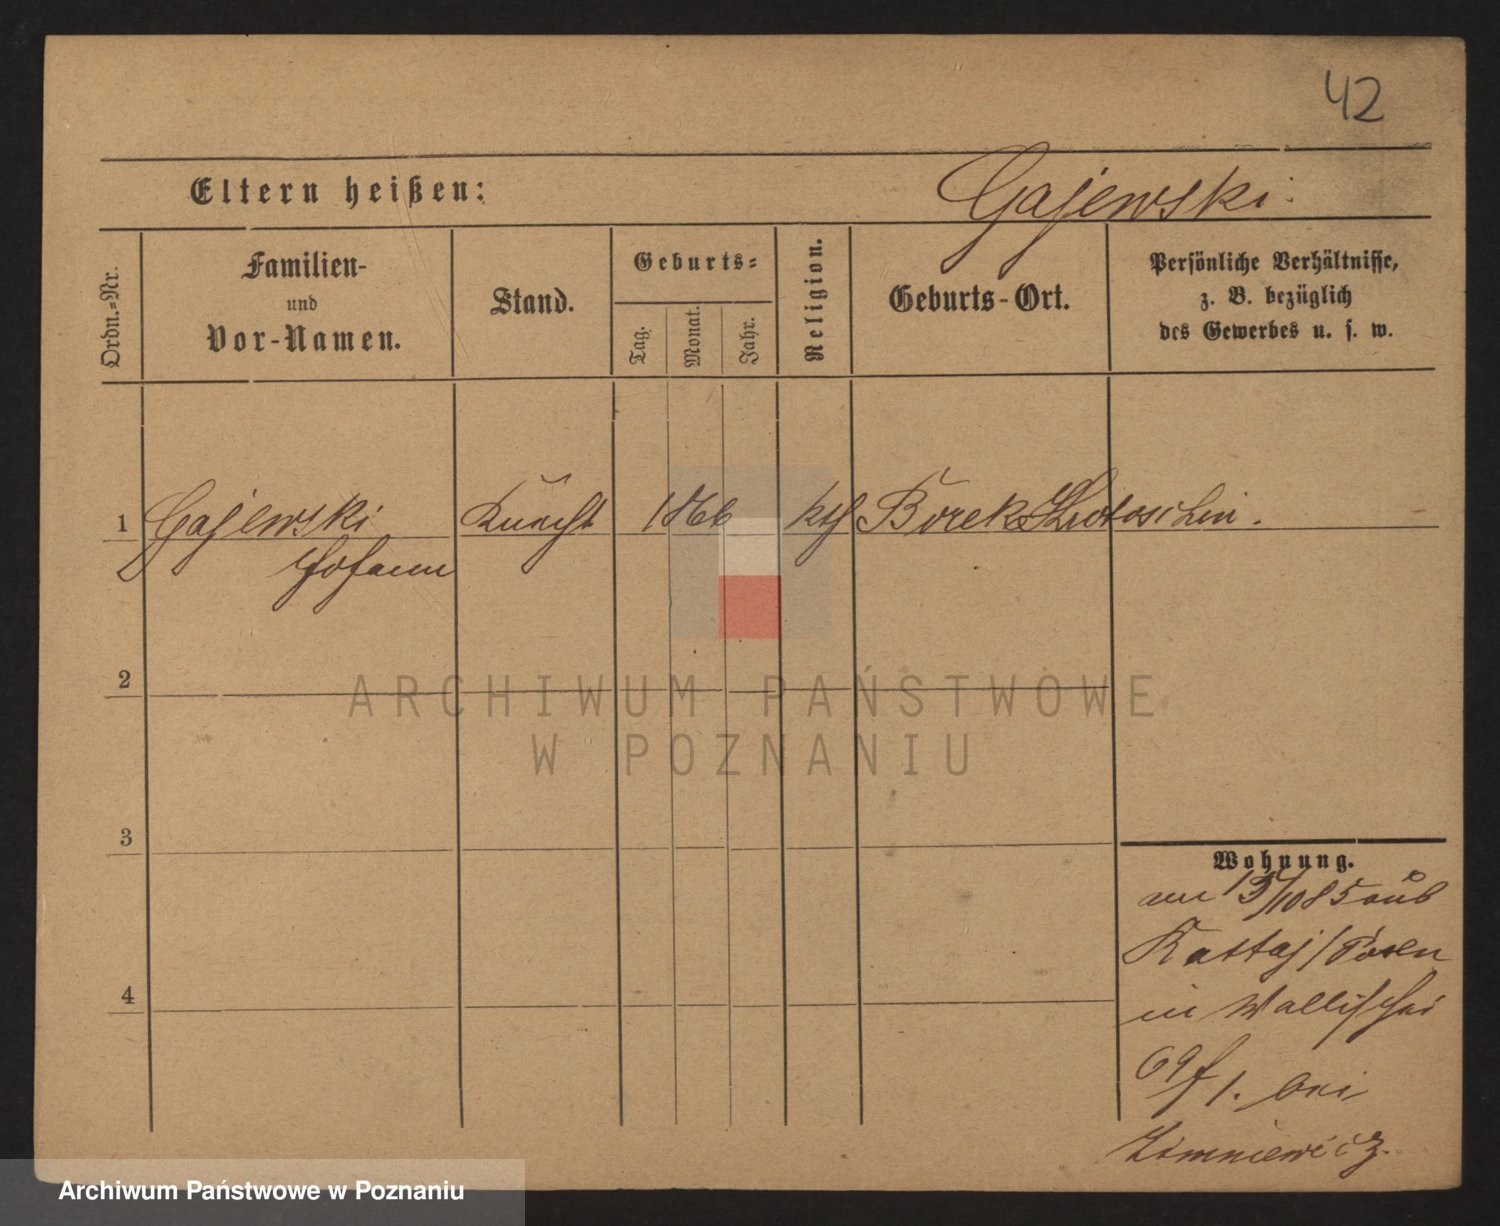 42
Eltern heißen: Gajewski.
Ordn.-Nr.
Familien-
und
Vor-Namen.
Stand.
Geburts-
Tag.
Monat.
Jahr.
Religion.
Geburts-Ort.
Persönliche Verhältnisse,
z. B. bezüglich
des Gewerbes u. s. w.
1 Gajewski Knecht 1866 kth Borek Krotoschin.
Johann
2
3
4
Wohnung.
am 13/10 85 aus
Kattaj/Posen
in Wallischei
69/1. bei
Zimniewicz.
ARCHIWUM PAŃSTWOWE
W POZNANIU
Archiwum Państwowe w Poznaniu